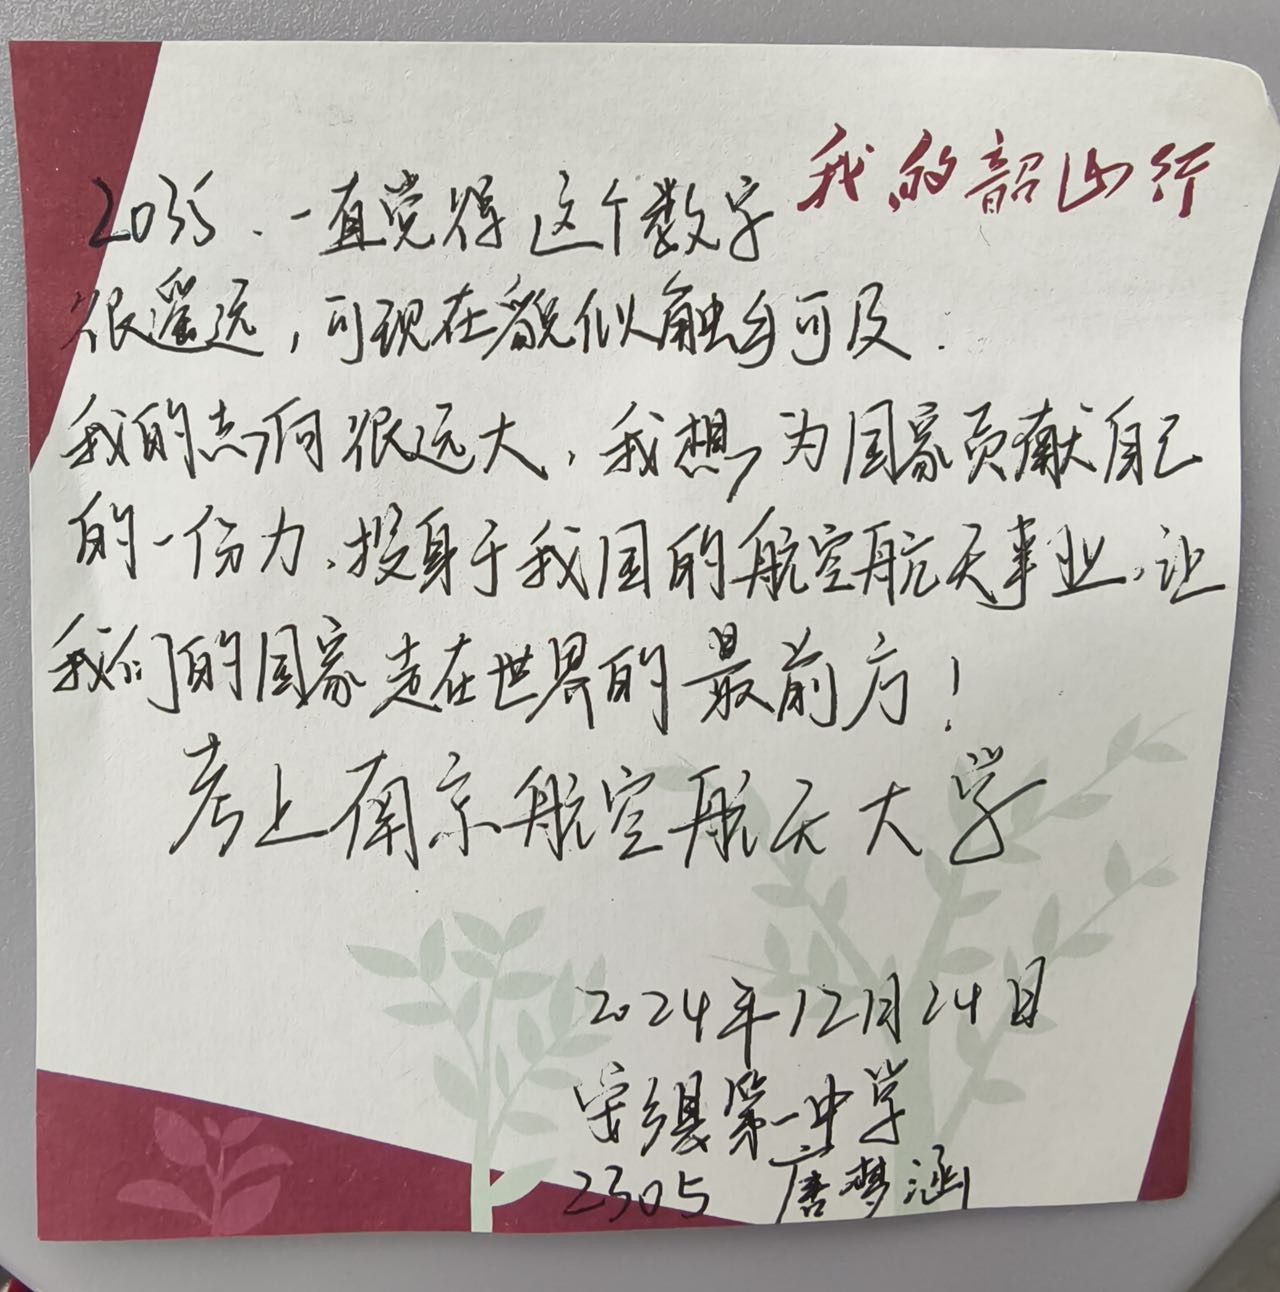 我的韶山行
2035、一直觉得这个数字
很遥远，可现在貌似触手可及．
我的志向很远大，我想为国家贡献自己
的一份力、投身于我国的航空航天事业，让
我们的国家走在世界的最前方！
考上南京航空航天大学
2024年12月24日
安乡县第一中学
2305 唐梦涵